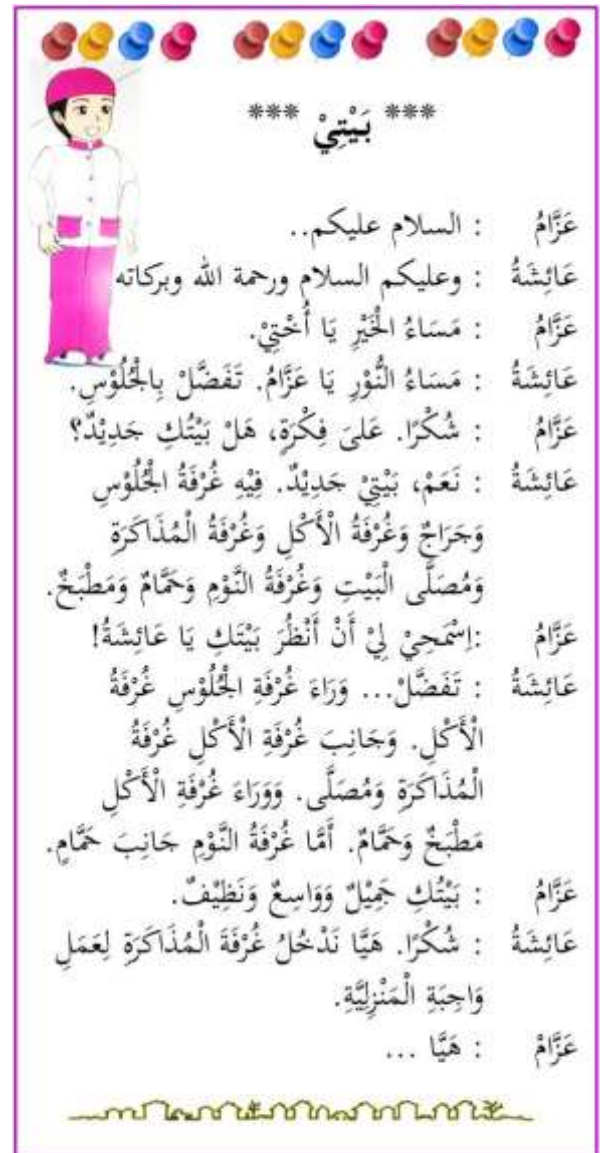 *** بَيْتِيْ ***
عَزَّامُ : السلام عليكم..
عَائِشَةُ : وعليكم السلام ورحمة الله وبركاته
عَزَّامُ : مَسَاءُ الْخَيْرِ يَا أُخْتِيْ.
عَائِشَةُ : مَسَاءُ النُّوْرِ يَا عَزَّامُ. تَفَضَّلْ بِالْجُلُوْسِ.
عَزَّامُ : شُكْرًا. عَلىَ فِكْرَةٍ، هَلْ بَيْتُكِ جَدِيْدٌ؟
عَائِشَةُ : نَعَمْ، بَيْتِيْ جَدِيْدٌ. فِيْهِ غُرْفَةُ الْجُلُوْسِ
وَجَرَاجٌ وَغُرْفَةُ الْأَكْلِ وَغُرْفَةُ الْمُذَاكَرَةِ
وَمُصَلَّى الْبَيْتِ وَغُرْفَةُ النَّوْمِ وَحَمَّامٌ وَمَطْبَخٌ.
عَزَّامُ :اِسْمَحِيْ لِيْ أَنْ أَنْظُرَ بَيْتَكِ يَا عَائِشَةُ!
عَائِشَةُ : تَفَضَّلْ... وَرَاءَ غُرْفَةِ الْجُلُوْسِ غُرْفَةُ
الْأَكْلِ. وَجَانِبَ غُرْفَةِ الْأَكْلِ غُرْفَةُ
الْمُذَاكَرَةِ وَمُصَلَّى. وَوَرَاءَ غُرْفَةِ الْأَكْلِ
مَطْبَخٌ وَحَمَّامٌ. أَمَّا غُرْفَةُ النَّوْمِ جَانِبَ حَمَّامٍ.
عَزَّامُ : بَيْتُكِ جَمِيْلٌ وَوَاسِعٌ وَنَظِيْفٌ.
عَائِشَةُ : شُكْرًا. هَيَّا نَدْخُلُ غُرْفَةَ الْمُذَاكَرَةِ لِعَمَلِ
وَاجِبَةِ الْمَنْزِلِيَّةِ.
عَزَّامْ : هَيَّا ...